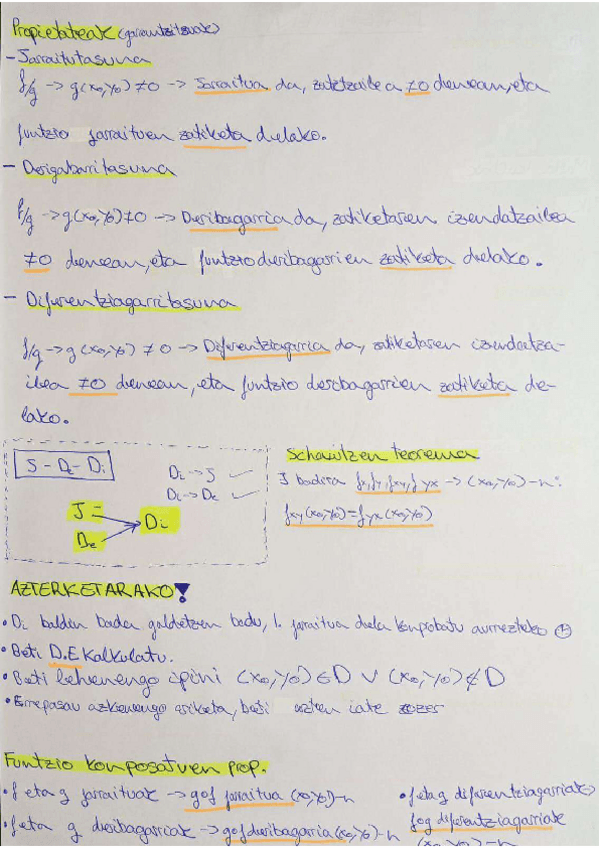 Propietateak (garrantzitsuak)
- Jarraitutasuna
f/g -> g(x₀,y₀) ≠0 -> Jarraitua da, zatitzailea ≠0 denean, eta
funtzio jarraituen zatiketa delako.
- Deribagarritasuna
f/g -> g(x₀,y₀) ≠0 -> Deribagarria da, zatiketaren izendatzailea
≠0 denean, eta funtzio deribagarrien zatiketa delako.
- Diferentziagarritasuna
f/g -> g(x₀,y₀) ≠ 0 -> Diferentziagarria da, zatiketaren izendatza-
ilea ≠0 denean, eta funtzio deribagarrien zatiketa de-
lako.
J - De - Di
Di -> J ✓
Di -> De ✓
J
De
Di
Schawitzen teorema
∃ badira fx, fy, fxy, fyx -> (x₀,y₀)-n:
fxy(x₀,y₀)=fyx(x₀,y₀)
AZTERKETARAKO!
• Di balden bada galdetzen badu, 1. jarraitua dela konprobatu aurrezteko
• Beti D.E kalkulatu.
• Beti lehenengo ipini (x₀,y₀)∈D ∨ (x₀,y₀)∉D
• Errepasau azkenengo ariketa, beti azten iate zozer
Funtzio konposatuen prop.
• f eta g jarraituak -> gof jarraitua (x₀,y₀)-n
• f eta g deribagarriak -> gof deribagarria (x₀,y₀)-n
• f eta g diferentziagarriak ->
fog diferentziagarriak
(x₀,y₀)-n